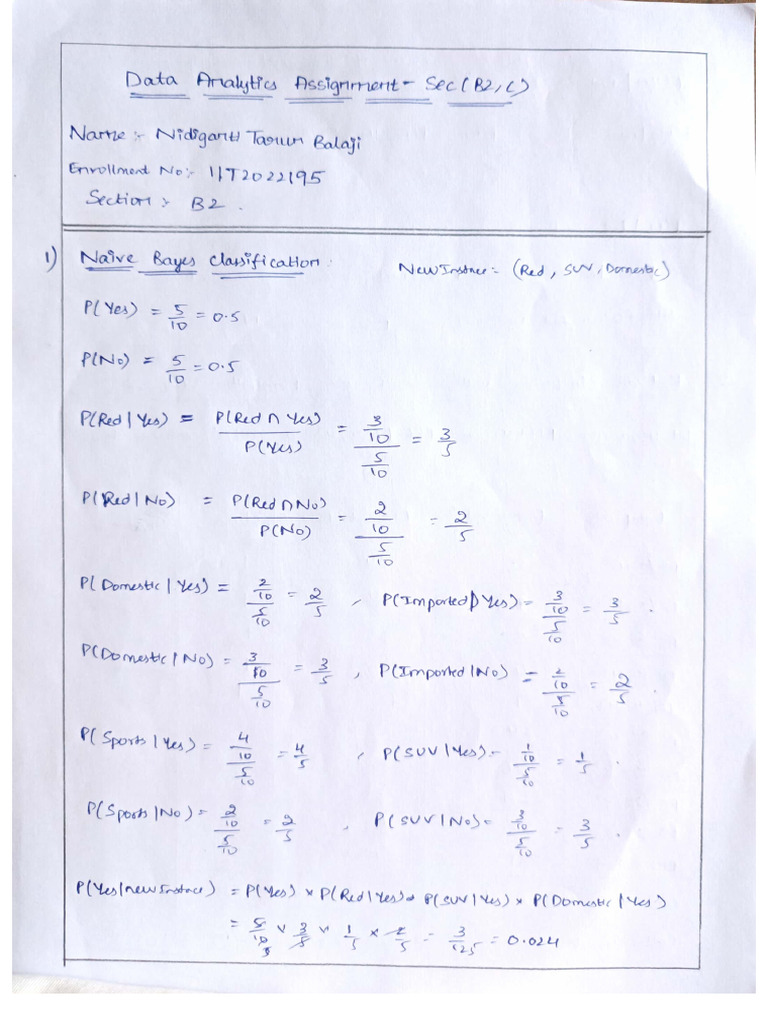 Data Analytics Assignment - Sec (B2, C)
Name :- Nidiganti Tarun Balaji
Enrollment No :- IIT2022195
Section :- B2.
1) Naive Bayes Classification: New Instnce = (Red, SUV, Domestic)
P(Yes) = 5/10 = 0.5
P(No) = 5/10 = 0.5
P(Red | Yes) = P(Red ∩ Yes) / P(Yes) = (3/10) / (5/10) = 3/5
P(Red | No) = P(Red ∩ No) / P(No) = (2/10) / (5/10) = 2/5
P(Domestic | Yes) = (2/10) / (5/10) = 2/5 , P(Imported | Yes) = (3/10) / (5/10) = 3/5 .
P(Domestic | No) = (3/10) / (5/10) = 3/5 , P(Imported | No) = (2/10) / (5/10) = 2/5 .
P(Sports | Yes) = (4/10) / (5/10) = 4/5 , P(SUV | Yes) = (1/10) / (5/10) = 1/5 .
P(Sports | No) = (2/10) / (5/10) = 2/5 , P(SUV | No) = (3/10) / (5/10) = 3/5 .
P(Yes | new Instnce) = P(Yes) × P(Red | Yes) × P(SUV | Yes) × P(Domestic | Yes)
= 5/10 × 3/5 × 1/5 × 2/5 = 3/125 = 0.024